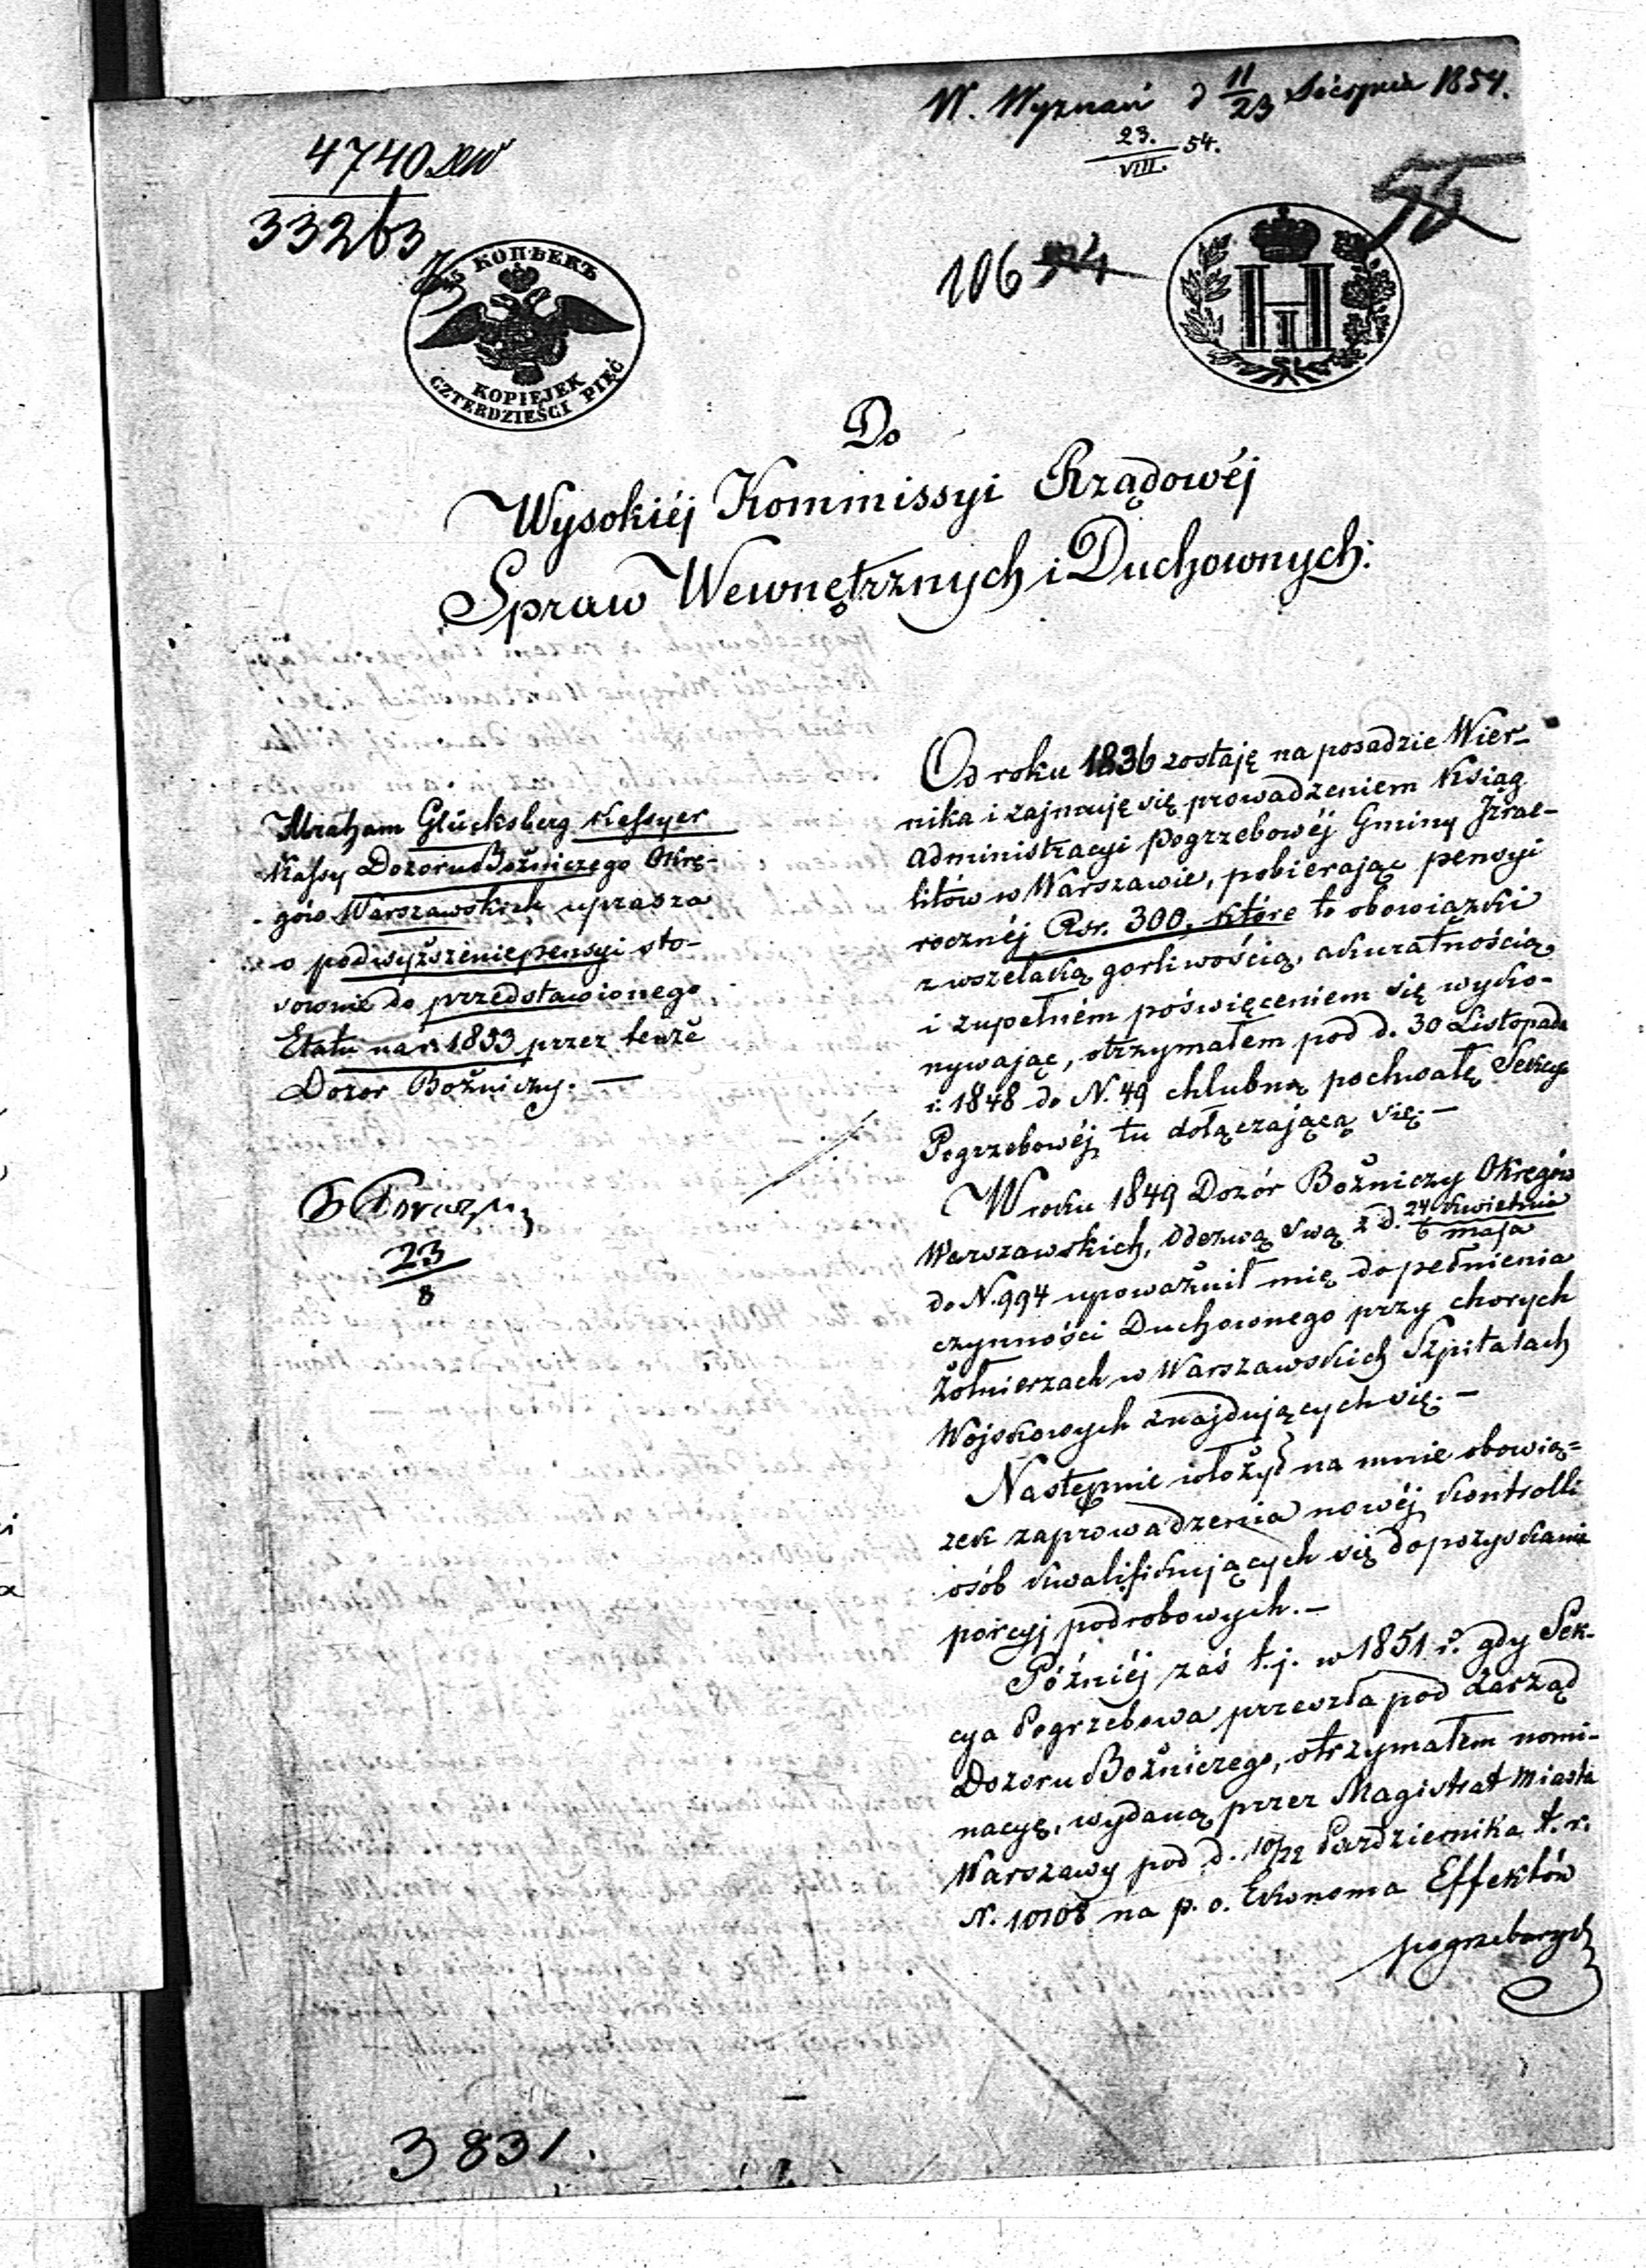 W. Wyznań d 11/23 Sierpnia 1854.
23./VIII. 54.
4740
33263
106
КОПѢЕКЪ
KOPIEJEK
CZTERDZIEŚCI PIĘĆ
Н I
Do
Wysokiéj Kommissyi Rządowéj
Spraw Wewnętrznych i Duchownych:
Abraham Glücksberg Kassyer
Kassy Dozoru Bożniczego Okrę-
gów Warszawskich uprasza
o podwyższenie pensyi sto-
sownie do przedstawionego
Etatu na r. 1853 przez tenże
Dozor Bożniczy. —
23/8
Od roku 1836 zostaję na posadzie Wier-
nika i zajmuję się prowadzeniem Ksiąg
Administracyi Pogrzebowéj Gminy Izrae-
litów w Warszawie, pobierając pensyi
rocznéj Rsr. 300, które to obowiązki
z wszelaką gorliwością, akuratnością
i zupełném poświęceniem się wyko-
nywając, otrzymałem pod d. 30 Listopada
r. 1848 do N. 49 chlubną pochwałę Sekcyi
Pogrzebowéj tu dołączającą się. —
W roku 1849 Dozór Bożniczy Okręgów
Warszawskich, odezwą swą z d. 24 Kwietnia/6 Maja
do N. 994 upoważnił mię do pełnienia
czynności Duchownego przy chorych
Żołnierzach w Warszawskich Szpitalach
Wojskowych znajdujących się. —
Następnie włożył na mnie obowią=
zek zaprowadzenia nowéj Kontrolli
osób kwalifikujących się do pozyskania
porcyj podrobowych. —
Późniéj zaś t.j. w 1851 r. gdy Sek-
cya Pogrzebowa przeszła pod Zarząd
Dozoru Bożniczego, otrzymałem nomi-
nacyę, wydaną przez Magistrat Miasta
Warszawy pod d. 10/22 Października t. r.
N. 10108 na p. o. Ekonoma Effektów
pogrzebowych
3831.